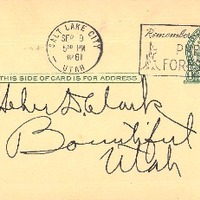 SALT LAKE CITY
SEP 9
5 PM
1961
UTAH
Remember
P
FOR
THIS SIDE OF CARD IS FOR ADDRESS
D. Clark
Bountiful
Utah